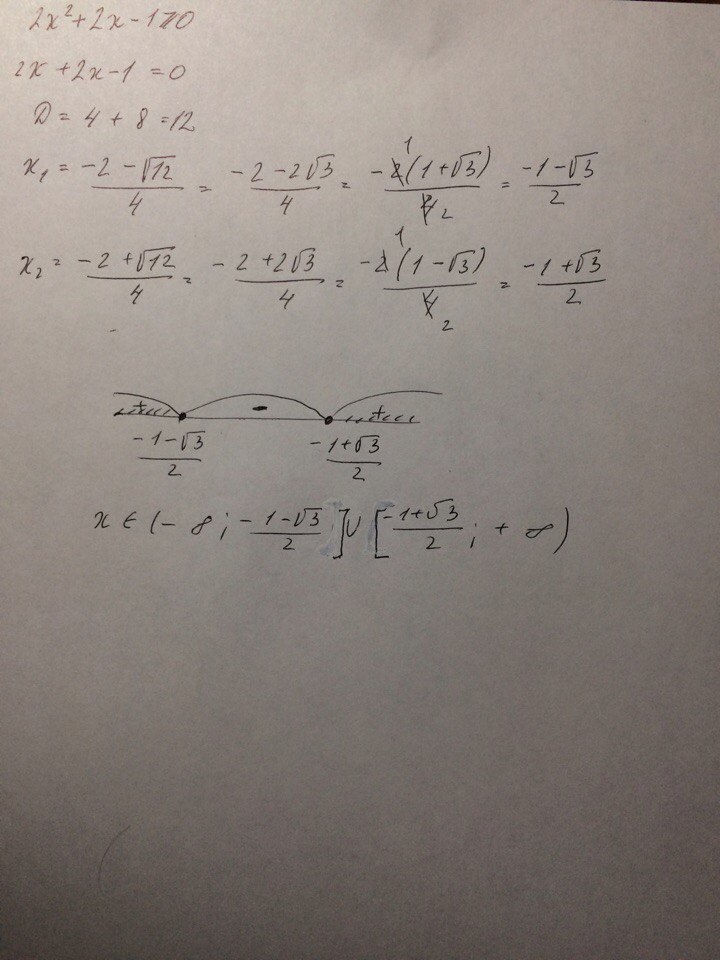 2x²+2x-1≥0
2x+2x-1=0
D=4+8=12
x₁=(-2-√12)/4=(-2-2√3)/4=(-2(1+√3))/4 1 2=(-1-√3)/2
x₂=(-2+√12)/4=(-2+2√3)/4=(-2(1-√3))/4 1 2=(-1+√3)/2
+ - +
(-1-√3)/2 (-1+√3)/2
x∈(-∞;(-1-√3)/2]∪[(-1+√3)/2;+∞)